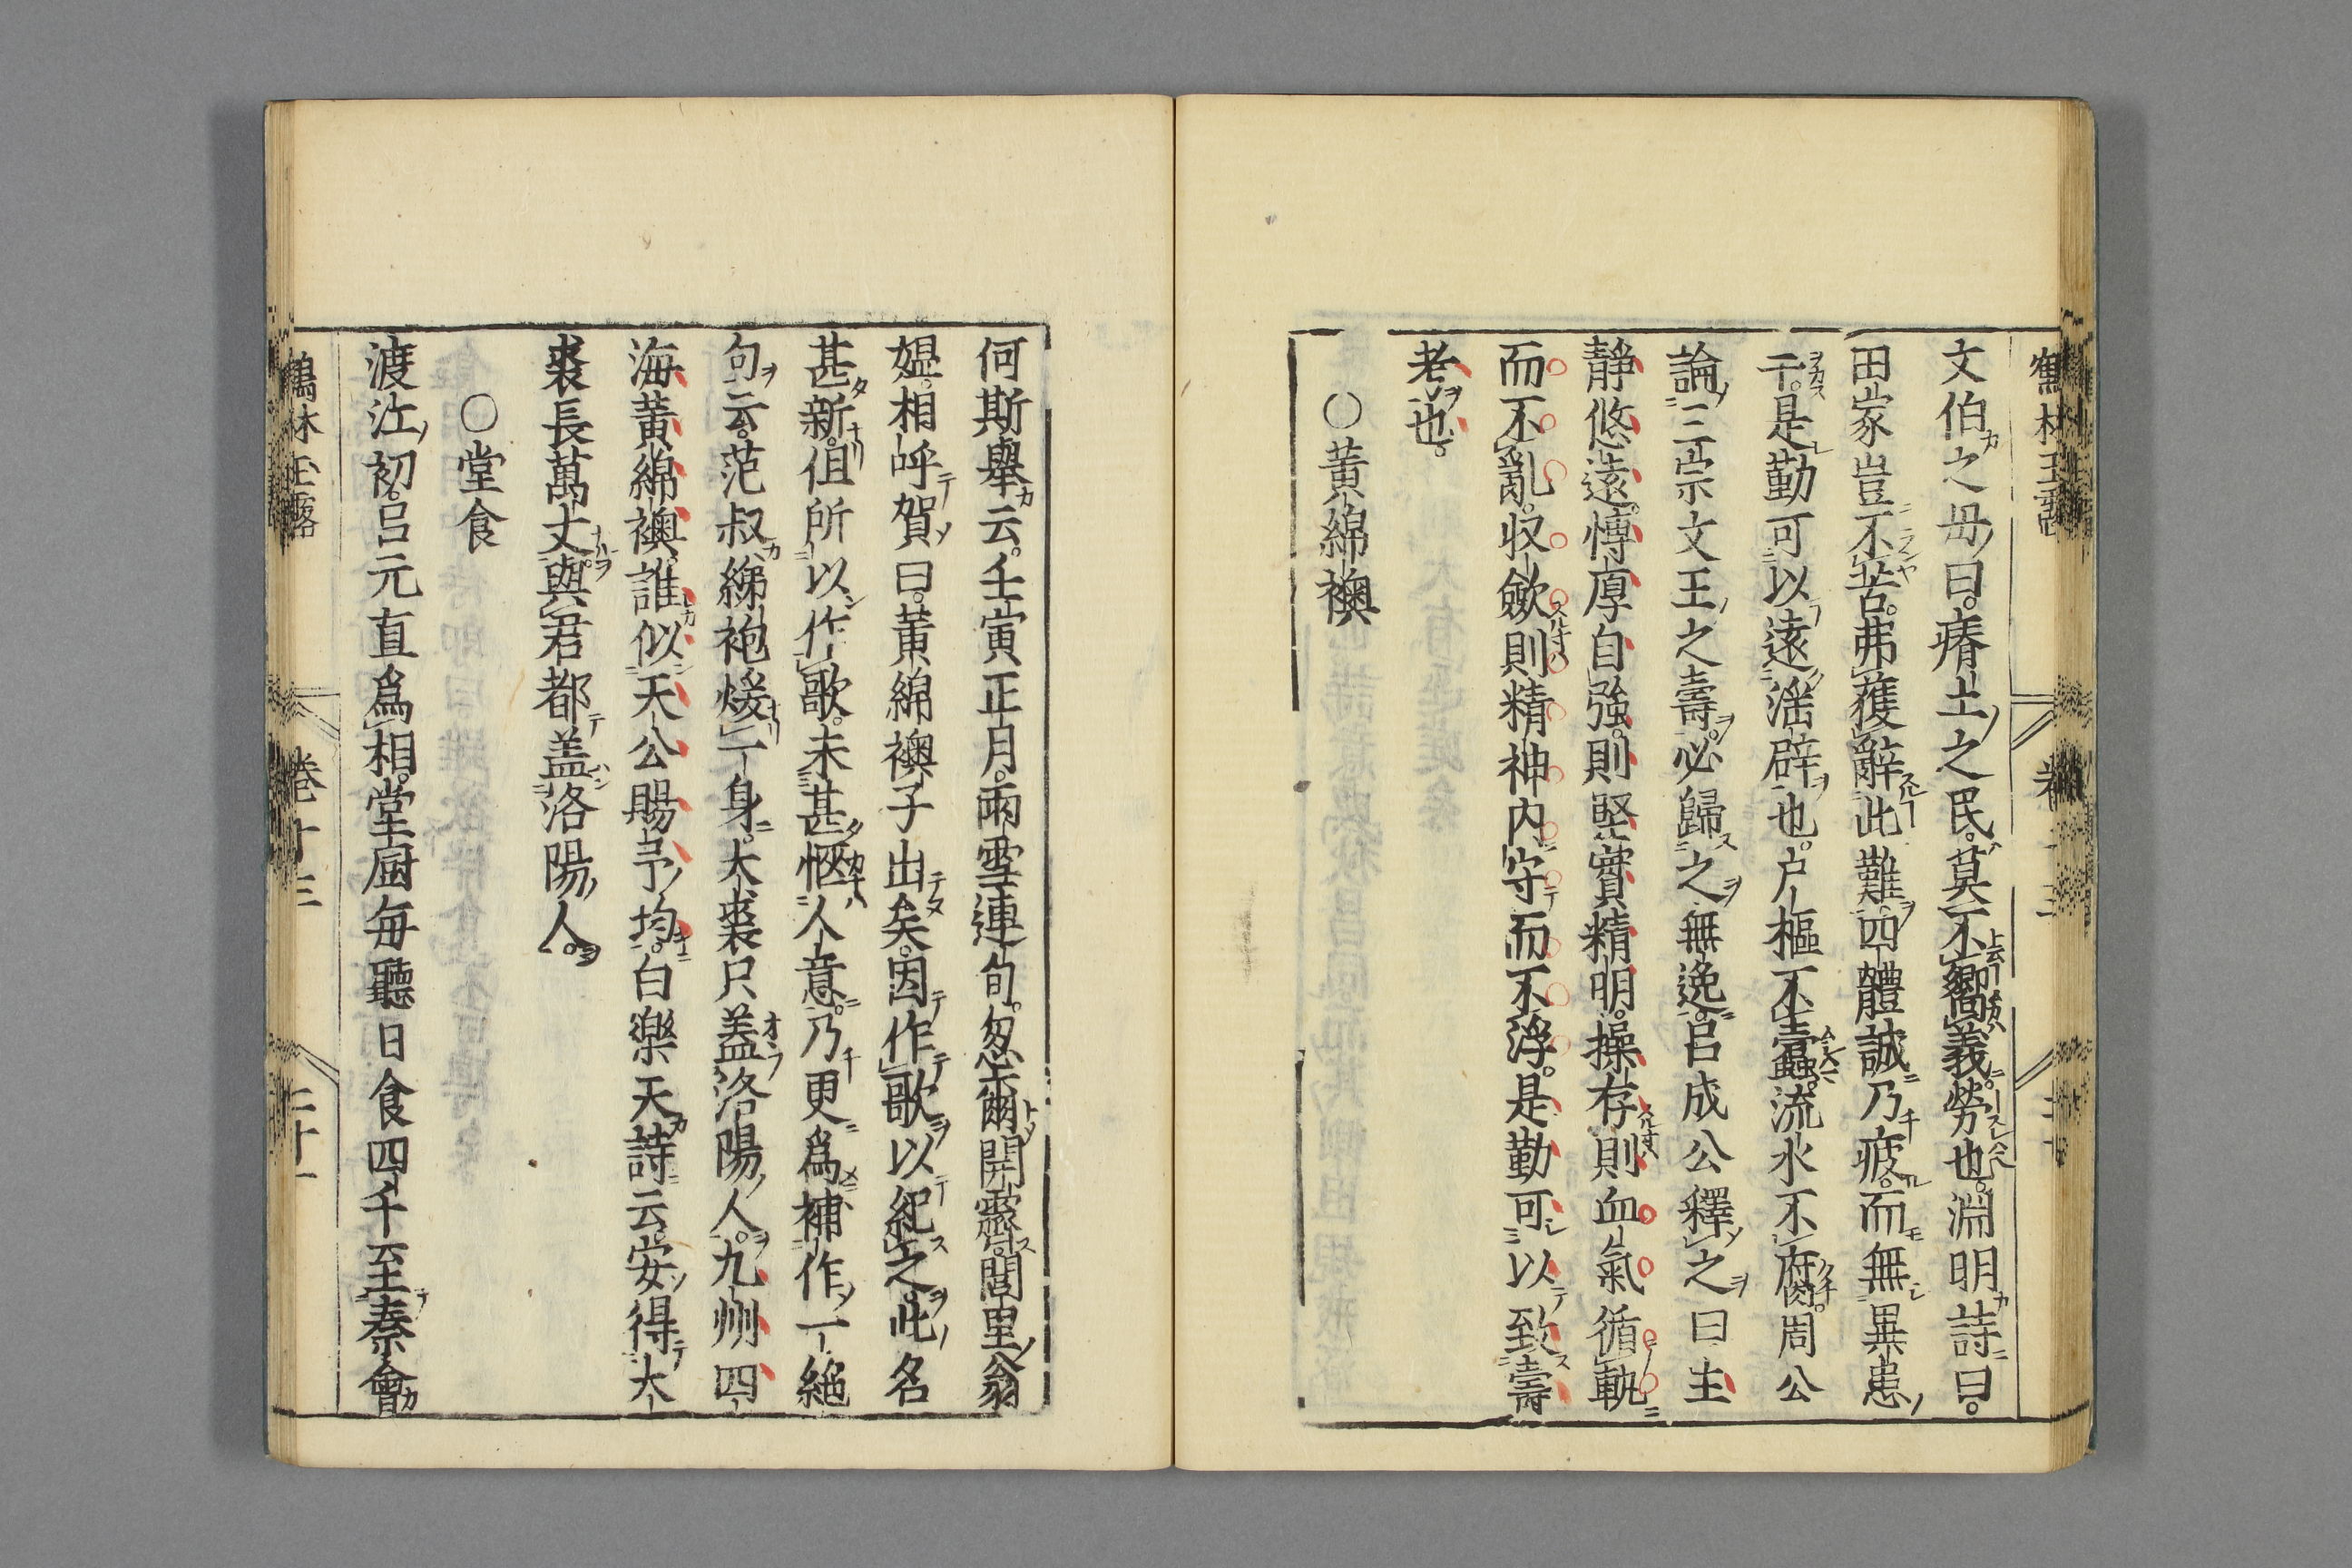 鶴林玉露
文伯之母曰。瘠土之民。莫不嚮義。勞也。淵明詩曰。
田家豈不苦。弗獲辭此難。四體誠乃疲。而無異患
干。是勤可以遠淫辟也。户樞不蠹。流水不腐。周公
論三宗文王之壽。必歸之無逸。呂成公釋之曰主
靜悠遠。博厚自強。則堅實精明。操存則血氣循軌
而不亂。収歛則精神内守而不浮。是勤可以致壽
考也。
〇黄綿襖
何斯舉云。壬寅正月。雨雪連旬。忽爾開霽。閭里翁
媼。相呼賀曰。黄綿襖子出矣。因作歌以紀之。此名
甚新。但所以作歌。未甚愜人意。乃更爲補作一絶
句云。范叔綈袍煖一身。大裘只盖洛陽人。九州四
海黄綿襖。誰似天公賜予均。白樂天詩云。安得大
裘長萬丈。與君都盖洛陽人。
〇堂食
渡江初。呂元直爲相。堂厨毎聽日食四千至秦會
鶴林玉露
卷十三
二十一